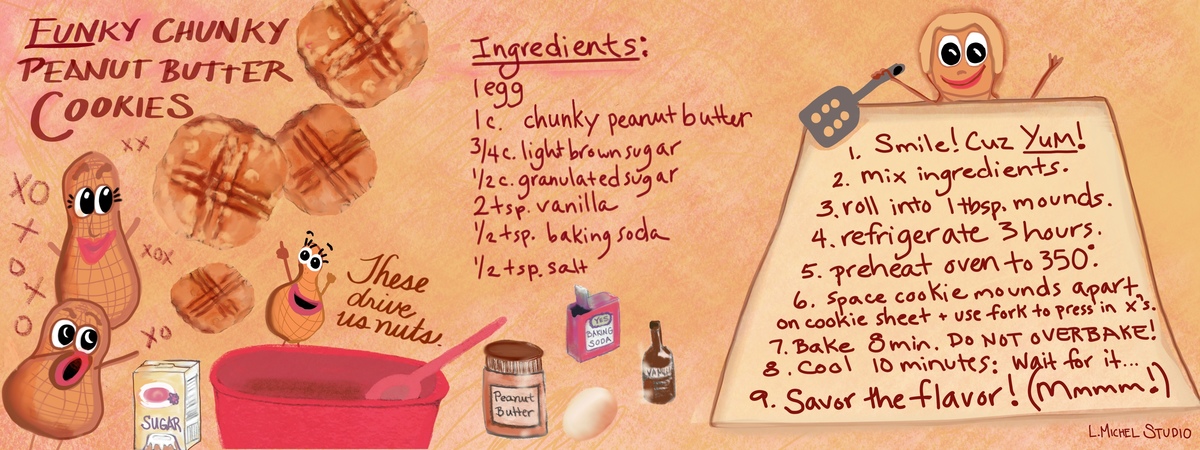 FUNKY CHUNKY
PEANUT BUTTER
COOKIES
XX
XO
X
O
X
O
XOX
XO
These
drive
us nuts.
SUGAR
Ingredients:
1 egg
1 c. chunky peanut butter
3/4 c. light brown sugar
1/2 c. granulated sugar
2 tsp. vanilla
1/2 tsp. baking soda
1/2 tsp. salt
Peanut
Butter
BAKING
SODA
1. Smile! Cuz YUM!
2. mix ingredients.
3. roll into 1 tbsp. mounds.
4. refrigerate 3 hours.
5. preheat oven to 350°.
6. space cookie mounds apart
on cookie sheet + use fork to press in x's.
7. Bake 8 min. DO NOT OVERBAKE!
8. Cool 10 minutes: wait for it...
9. Savor the flavor! (Mmmm!)
L.MICHEL STUDIO